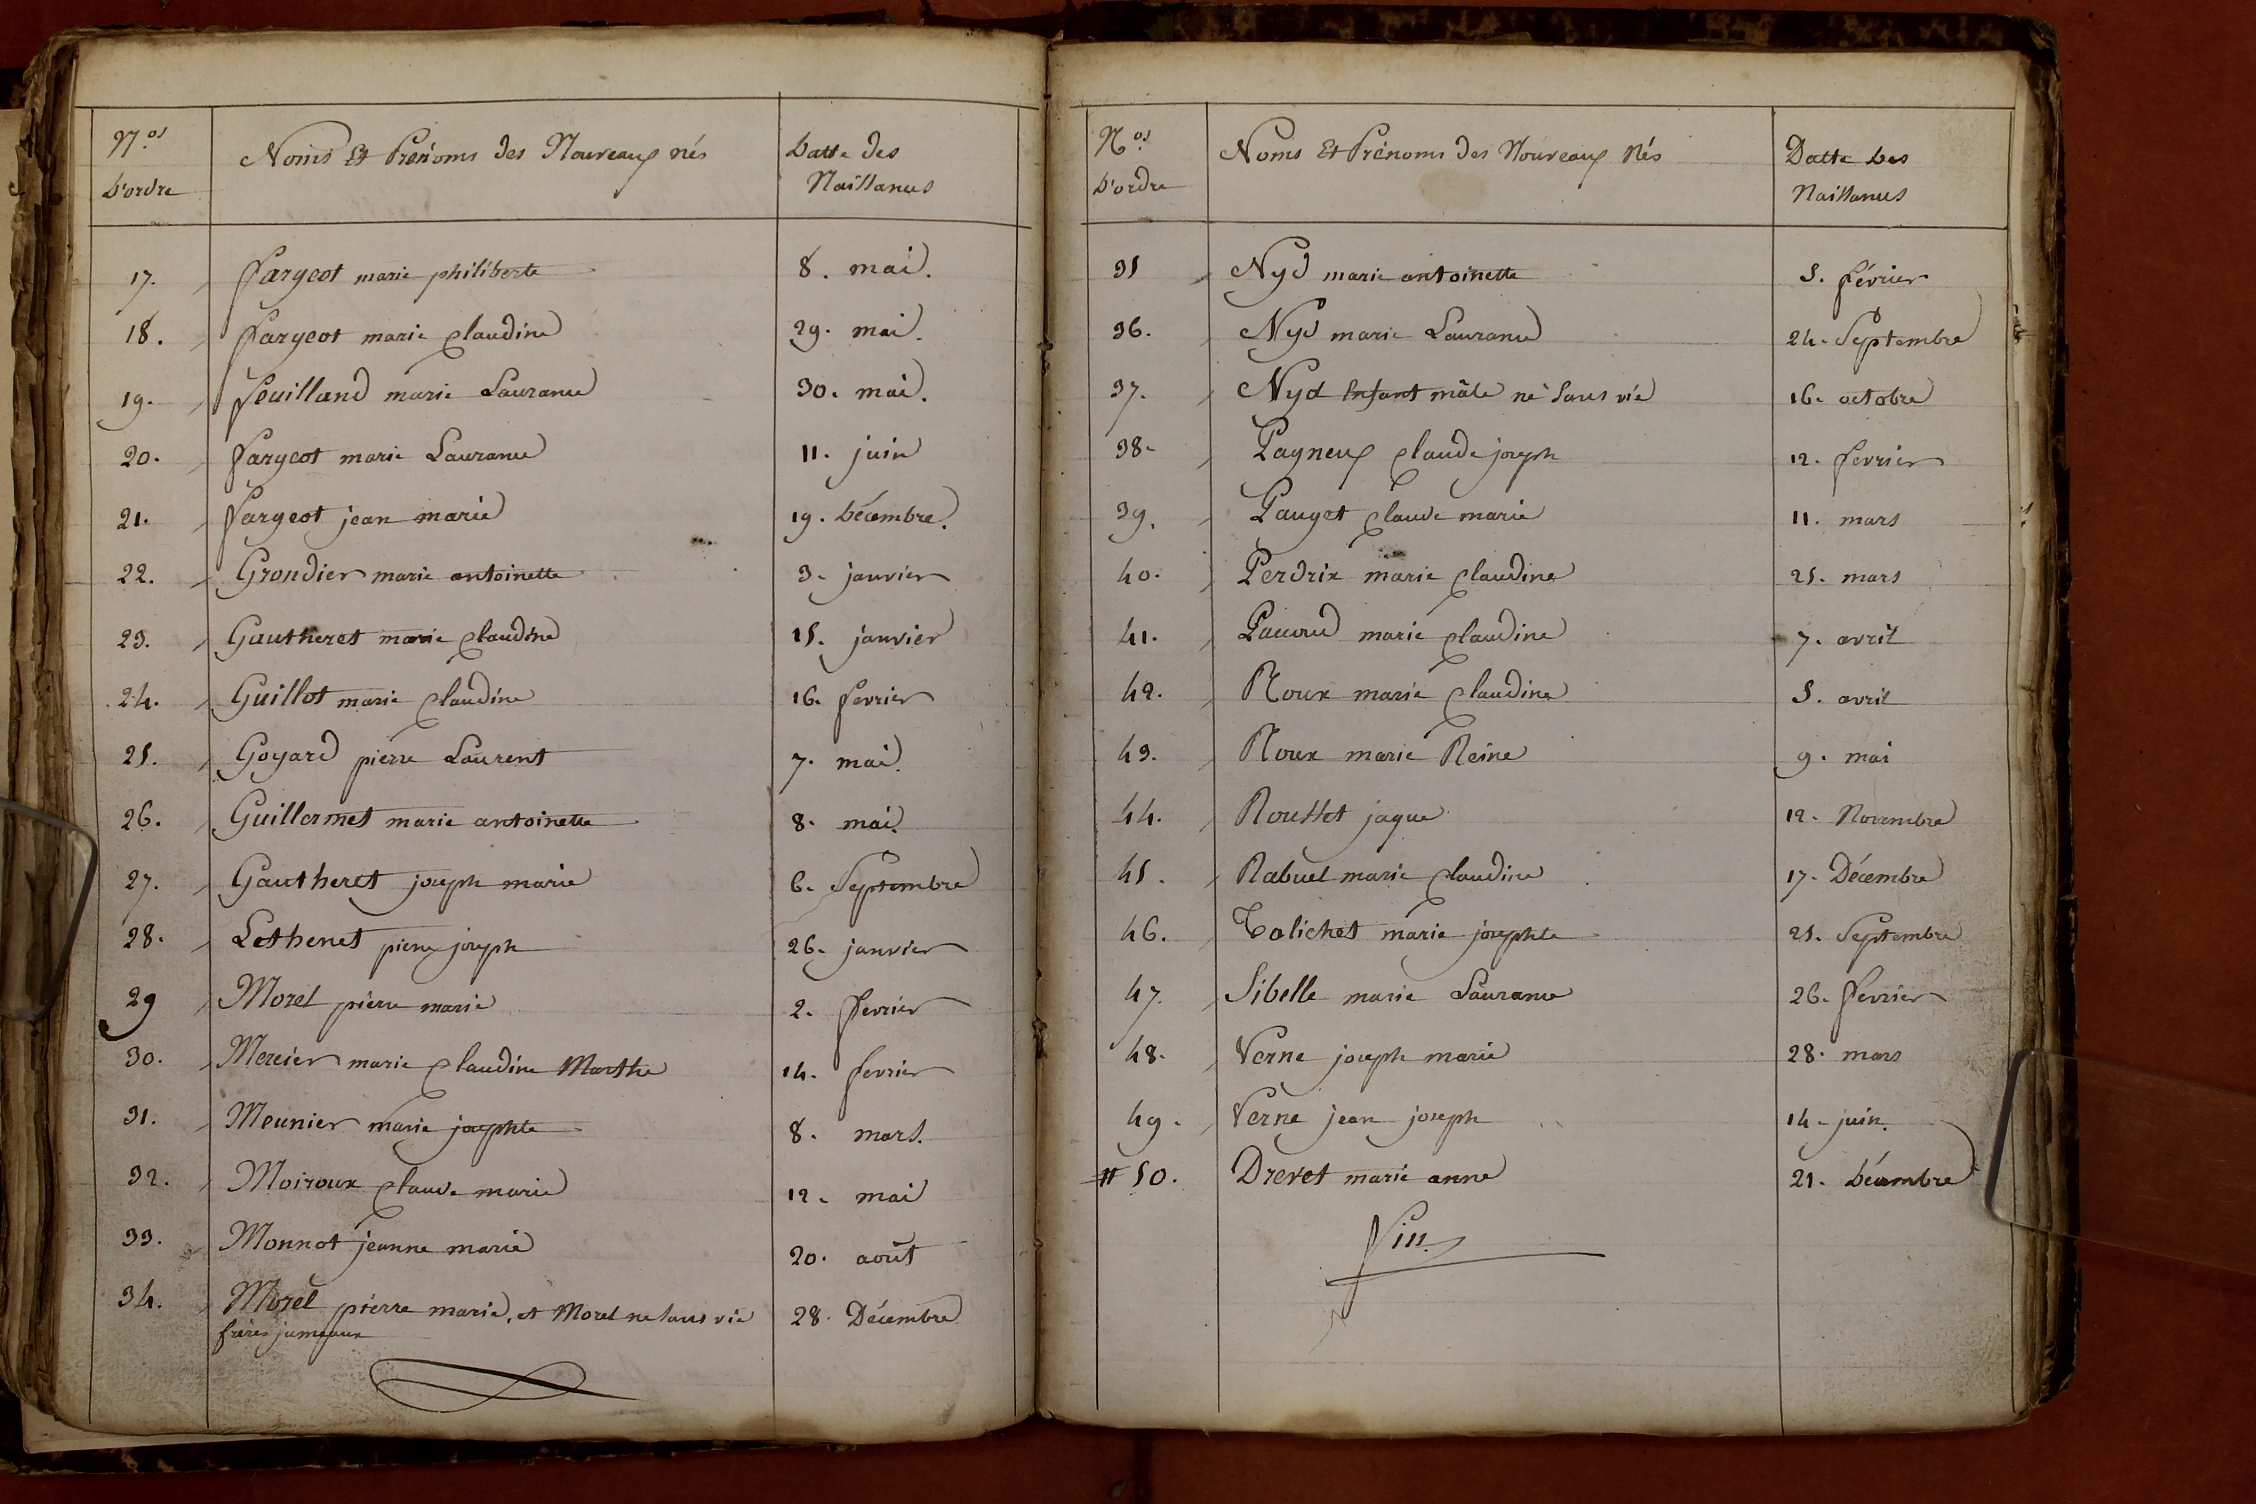 N.os d'ordre Noms Et Prénoms des Nouveaux nés Datte des Naissances
17. Fargeot marie philiberte 8. mai.
18. Fargeot marie Claudine 29. mai.
19. Feuilland marie Laurance 30. mai.
20. Fargeot marie Laurance 11. juin
21. Fargeot jean marie 19. Décembre.
22. Grondier marie antoinette 3. janvier
23. Gautheret marie Claudine 15. janvier
24. Guillot marie Claudine 16. fevrier
25. Goyard pierre Laurent 7. mai.
26. Guillermet marie antoinette 8. mai.
27. Gautheret joseph marie 6. Septembre
28. Lethenet pierre joseph 26. janvier
29 Morel pierre marie 2. fevrier
30. Mercier marie Claudine Marthe 14. fevrier
31. Meunier marie josephte 8. mars.
32. Moiroux Claude marie 12. mai
33. Monnot jeanne marie 20. août
34. Morel pierre marie, et Morel ne sans vie 28. Décembre
frères jumeaux
N.os d'ordre Noms Et Prénoms des Nouveaux Nés Datte Des Naissances
35 Nyd marie antoinette 5. février
36. Nyd marie Laurance 24. Septembre
37. Nyd Enfant mâle né sans vie 16. octobre
38. Pagneux Claude joseph 12. fevrier
39. Pauget Claude marie 11. mars
40. Perdrix marie Claudine 25. mars
41. marie Claudine 7. avril
42. Roux marie Claudine 5. avril
43. Roux marie Reine 9. mai
44. Rousset jaque 12. Novembre
45. Rabuel marie Claudine 17. Décembre
46. Tolichet marie josephte 25. Septembre
47. Sibelle marie Laurance 26. fevrier
48. Verne joseph marie 28. mars
49. Verne jean joseph 14. juin.
# 50. Drevet marie anne 21. Décembre
Fin.